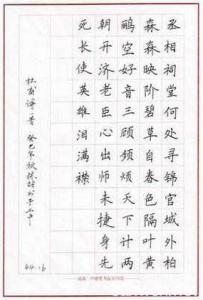 丞相祠堂何处寻锦官城外柏
森森映阶碧草自春色隔叶黄
鹂空好音三顾频烦天下计两
朝开济老臣心出师未捷身先
死长使英雄泪满襟
杜甫诗一首 癸巳年秋